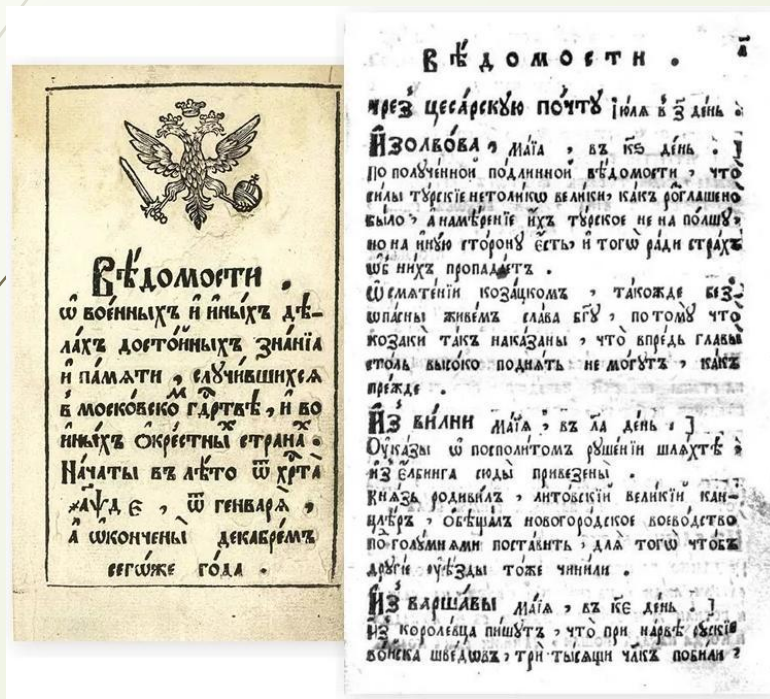 Вѣ́домости .
ѡ҆ вое́нныхъ и҆ и҆ны́хъ дѣ-
ла́хъ досто́йныхъ зна́нїа
и҆ па́мѧти , слꙋчи́вшихсѧ
в моско́вско гдⷭ҇ртвѣ , и҆ во
и҆ны́хъ ѻ҆кре́стны страна .
На́чаты въ лѣ́то ѿ хрⷭ҇та̀
҂аѱд е҃ , ѿ генварѧ̀ ,
а҆ ѡ҆ко́нчены̀ декабре́мъ
сегѡ́же го́да .
Вѣ́домости . а҃
чрез̾ цеса́рскꙋю по́чтꙋ і҆ю́лѧ в з҃ де́нь
И҆зо́лво́ва , ма́їа , въ к҃ѕ де́нь . ]
По полꙋ́ченной по́длинной вѣ́домости , что
си́лы тꙋ́рскїе нето́ликѡ вели́ки , ка́къ роⷥглаше́но
бы́ло , а҆ намѣ́ренїе и҆́хъ тꙋ́рское не на по́лшꙋ ,
но на и҆́нꙋю сто́ронꙋ є҆́сть , и҆ тогѡ̀ ра́ди стра́хъ
ѡ҆б ни́хъ пропада́етъ .
Ѡ҆ смѧте́нїи коза́цкомъ , тако́жде без̾-
ѡ҆па́сны живе́мъ сла́ва бг҃ꙋ , потомꙋ̀ что
козакѝ та́къ нака́заны , что впре́дь главы̀
сто́ль высо́ко поднѧ́ть не мо́гꙋтъ , ка́къ
пре́жде .
И҆з̾ ви́лни ма́їѧ , въ л҃а де́нь . ]
Оу҆ка́зы ѡ҆ поспо́литомъ рꙋше́нїи шлѧ́хтѣ
и҆з̾ є҆́лбинга сюды̀ привезены̀ .
Кнѧ́зь родиви́лъ , лито́вскїй вели́кїй ка́н-
цлѣръ , ѻ҆бѣща́лъ новогоро́дское воево́дство
по голꙋмнѧми поста́вить , для тогѡ̀ что́бъ
дрꙋгі́е оу҆ѣ́зды то́же чини́ли .
И҆з̾ варша́вы ма́їѧ , въ к҃е де́нь . ]
И҆з̾ короле́вца пи́шꙋтъ , что при на́рвѣ рꙋ́скїе
во́йска шве́дѡвъ , трѝ ты́сѧщи чл҃къ поби́ли